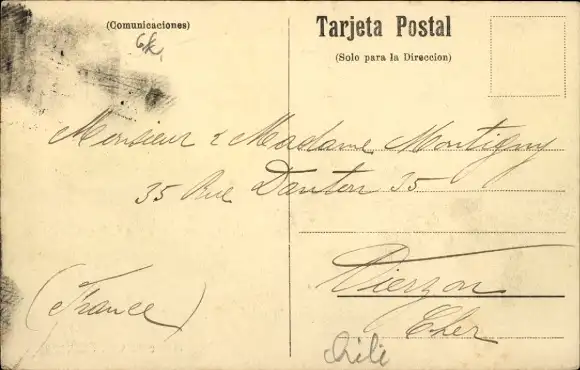 (Comunicaciones)
Tarjeta Postal
(Solo para la Direccion)
Monsieur & Madame Montigny
35 Rue Danton 35
Vierzon
Cher
(France)
chile